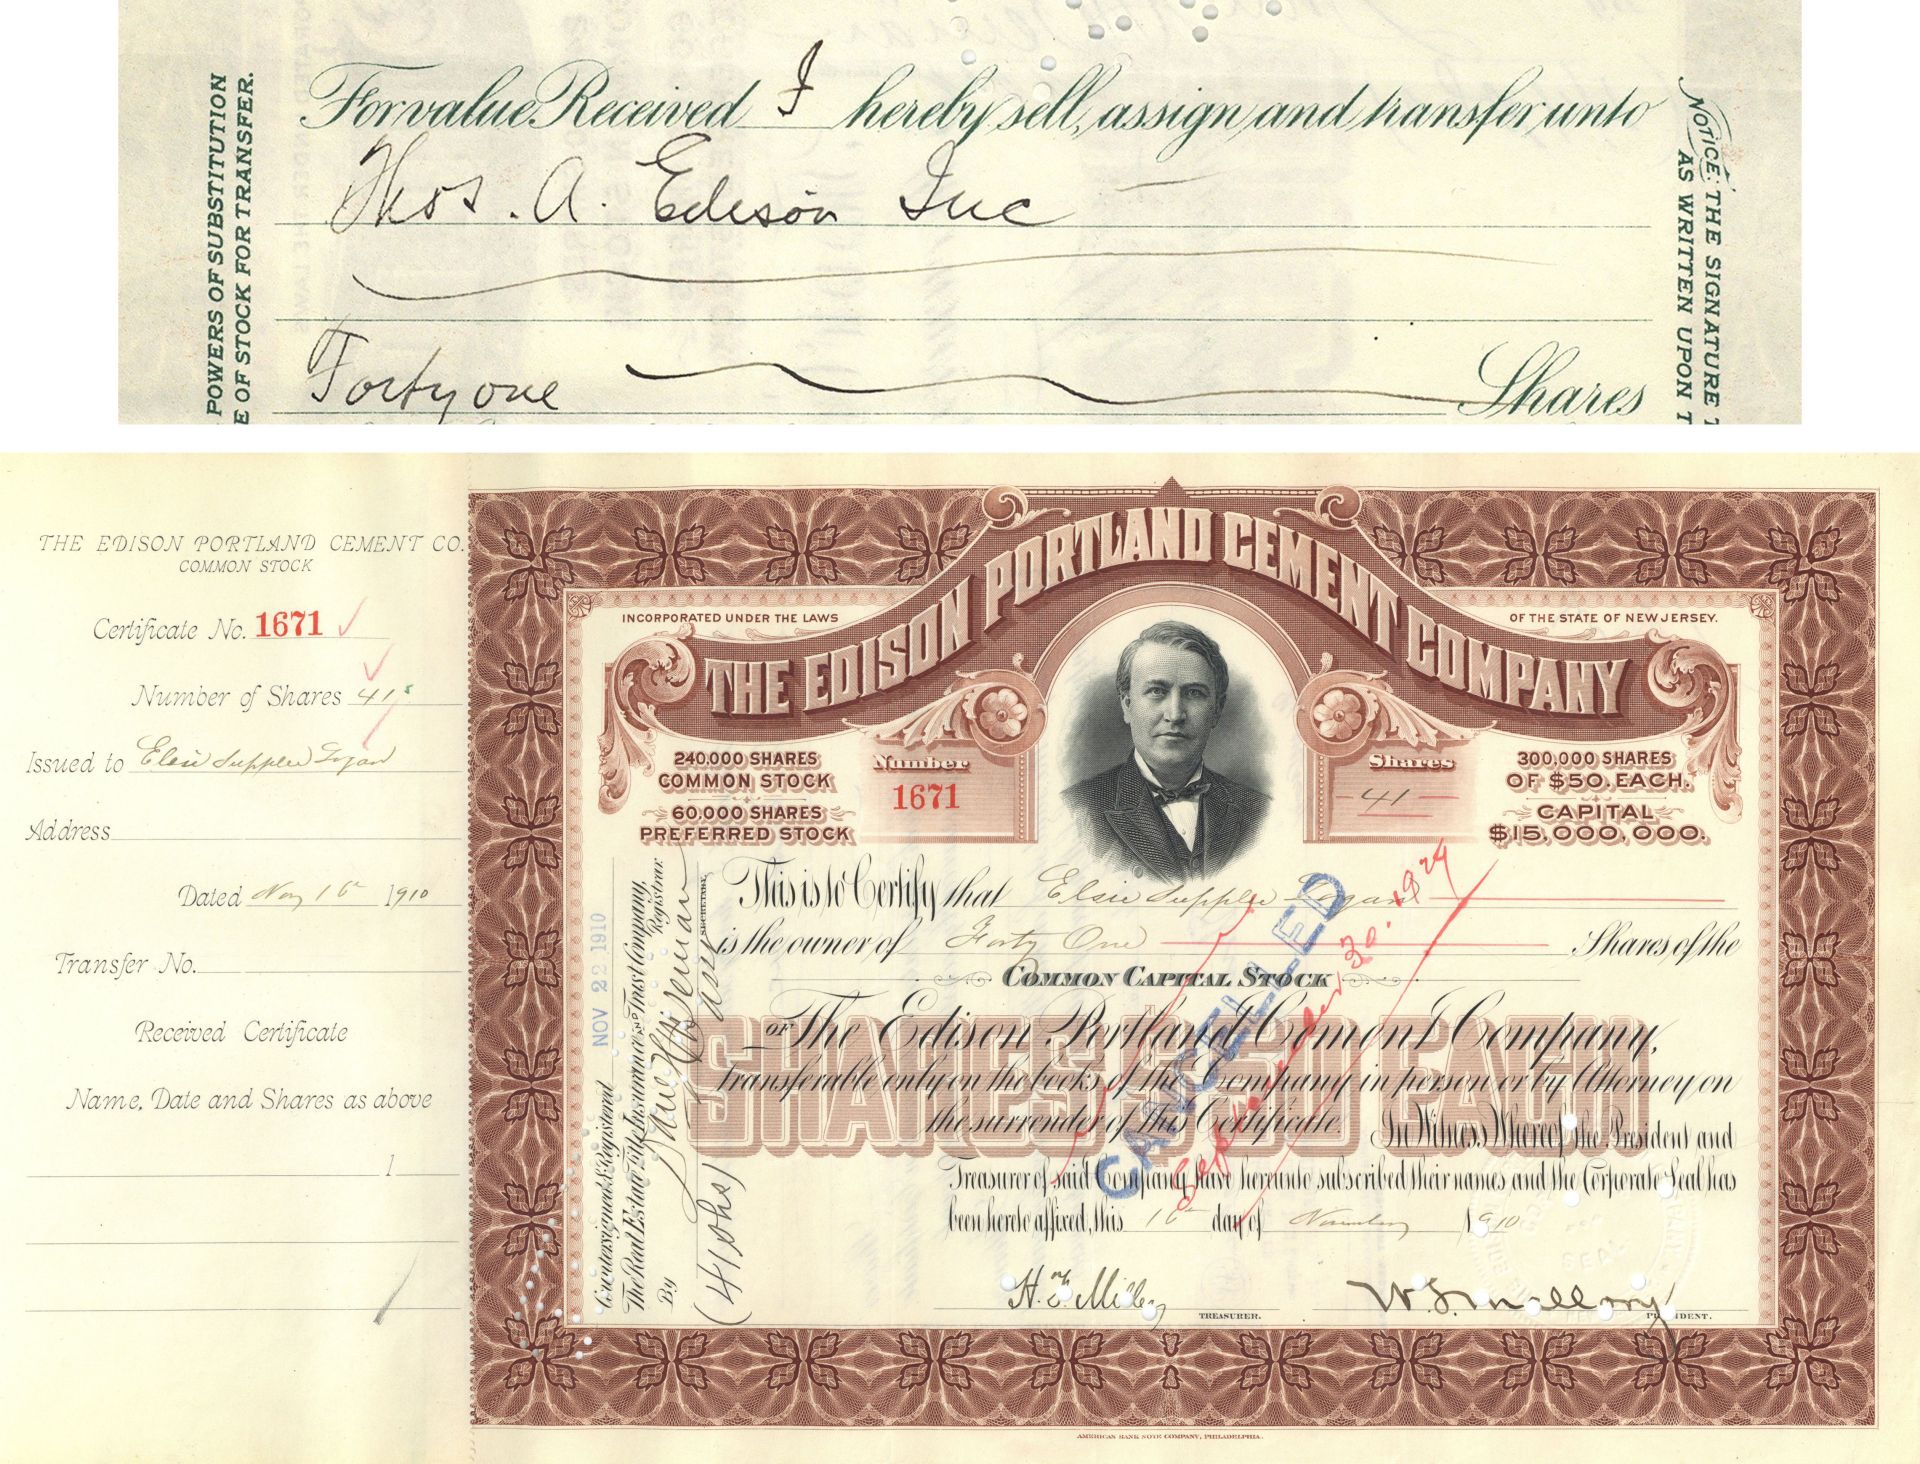 For value Received I hereby sell, assign and transfer unto
Thos. A. Edison Inc
Forty one Shares
POWERS OF SUBSTITUTION
E OF STOCK FOR TRANSFER.
NOTICE: THE SIGNATURE T
AS WRITTEN UPON T
THE EDISON PORTLAND CEMENT CO.
COMMON STOCK
Certificate No. 1671
Number of Shares 41
Issued to Elsie Supplee
Address
Dated Nov 16th 1910
Transfer No.
Received Certificate
Name, Date and Shares as above
1
THE EDISON PORTLAND CEMENT COMPANY
INCORPORATED UNDER THE LAWS
OF THE STATE OF NEW JERSEY.
240,000 SHARES
COMMON STOCK
60,000 SHARES
PREFERRED STOCK
Number
1671
Shares
41
300,000 SHARES
OF $50. EACH.
CAPITAL
$15,000,000.
This is to Certify that Elsie Supplee
is the owner of Forty One Shares of the
COMMON CAPITAL STOCK
OF The Edison Portland Cement Company,
transferable only on the books of the Company in person or by Attorney on
the surrender of this Certificate. In Witness Whereof, the President and
Treasurer of said Company have hereunto subscribed their names and the Corporate Seal has
been hereto affixed, this 16th day of November 1910
SHARES $50 EACH
CANCELLED
September 30. 1929
H. F. Miller
TREASURER.
W. S. Mallory
PRESIDENT.
NOV 22 1910
Countersigned & Registered
The Real Estate Title Insurance & Trust Company,
Registrar.
By
SECRETARY.
(41 shs)
SEAL
AMERICAN BANK NOTE COMPANY, PHILADELPHIA.